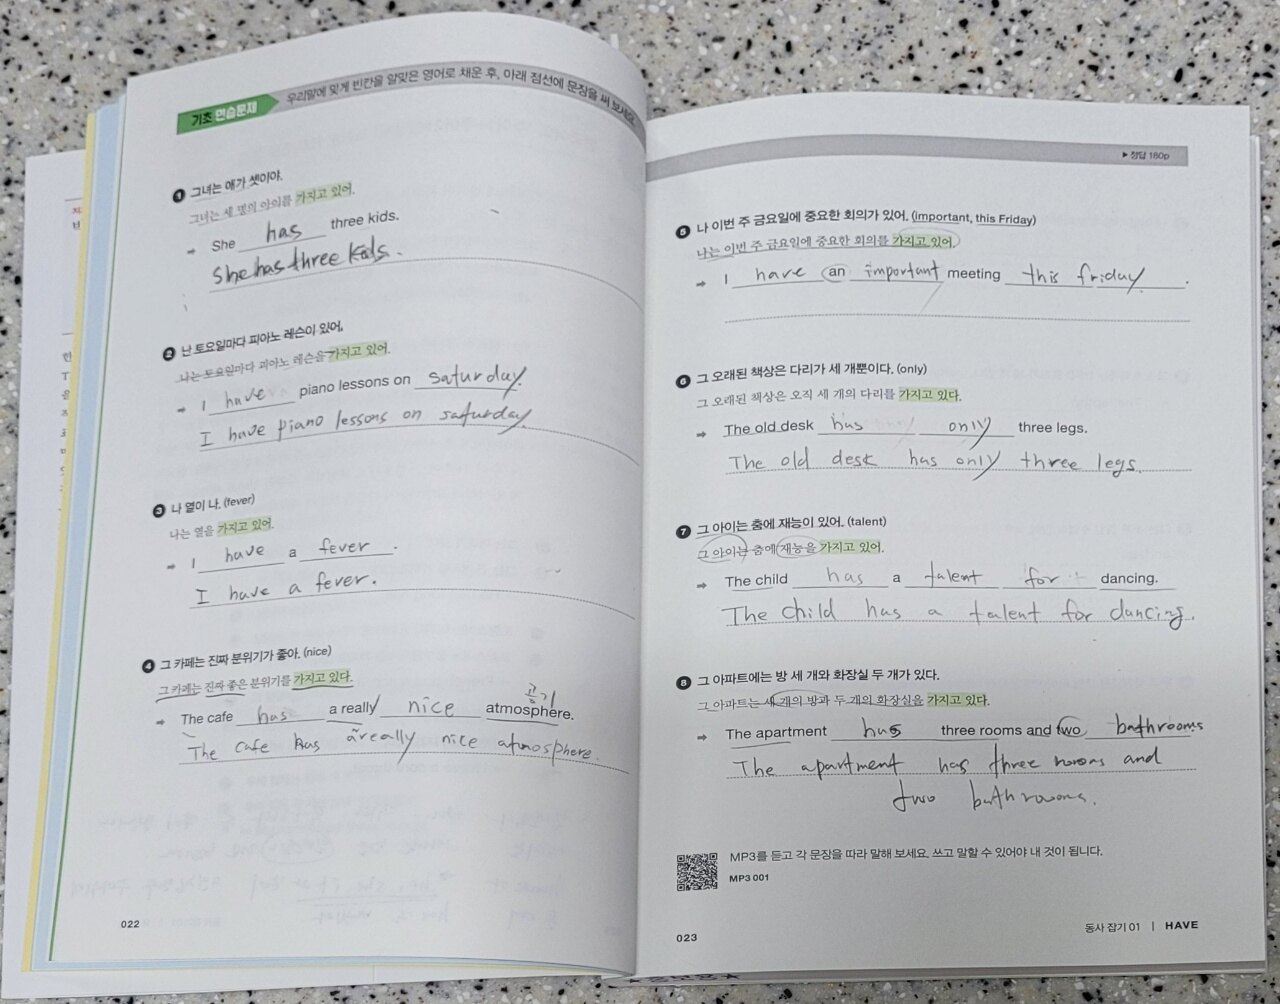 기초 연습문제
우리말에 맞게 빈칸을 알맞은 영어로 채운 후, 아래 점선에 문장을 써 보세요.
1 그녀는 애가 셋이야.
그녀는 세 명의 아이를 가지고 있어.
➡ She has three kids.
She has three kids.
2 난 토요일마다 피아노 레슨이 있어.
나는 토요일마다 피아노 레슨을 가지고 있어.
➡ I have piano lessons on saturday.
I have piano lessons on saturday.
3 나 열이 나. (fever)
나는 열을 가지고 있어.
➡ I have a fever.
I have a fever.
4 그 카페는 진짜 분위기가 좋아. (nice)
그 카페는 진짜 좋은 분위기를 가지고 있다.
공기
➡ The cafe has a really nice atmosphere.
The cafe has a really nice atmosphere.
022
▶ 정답 180p
5 나 이번 주 금요일에 중요한 회의가 있어. (important, this Friday)
나는 이번 주 금요일에 중요한 회의를 가지고 있어.
➡ I have an important meeting this friday.
6 그 오래된 책상은 다리가 세 개뿐이다. (only)
그 오래된 책상은 오직 세 개의 다리를 가지고 있다.
➡ The old desk has only three legs.
The old desk has only three legs.
7 그 아이는 춤에 재능이 있어. (talent)
그 아이는 춤에 재능을 가지고 있어.
➡ The child has a talent for dancing.
The child has a talent for dancing.
8 그 아파트에는 방 세 개와 화장실 두 개가 있다.
그 아파트는 세 개의 방과 두 개의 화장실을 가지고 있다.
➡ The apartment has three rooms and two bathrooms
The apartment has three rooms and
two bathrooms.
MP3를 듣고 각 문장을 따라 말해 보세요. 쓰고 말할 수 있어야 내 것이 됩니다.
MP3 001
023
동사 잡기 01 | HAVE